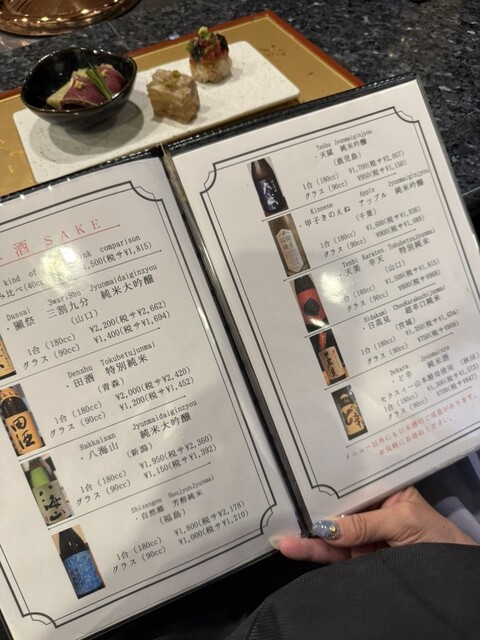 酒 SAKE
kind of
nk comparison
み比べ(40cc
,500(税サ¥1,815)
Dassai 3wari9bu Jyunmaidaiginzyou
・獺祭 三割九分 純米大吟醸
(山口)
1合 (180cc) ¥2,200(税サ¥2,662)
グラス (90cc) ¥1,400(税サ¥1,694)
Denshu Tokubetujunmai
・田酒 特別純米
(青森)
1合 (180cc) ¥2,000(税サ¥2,420)
グラス (90cc) ¥1,200(税サ¥1,452)
Hakkaisan Jyunmaidaiginzyou
・八海山 純米大吟醸
(新潟)
1合 (180cc) ¥1,950(税サ¥2,360)
グラス (90cc) ¥1,150(税サ¥1,392)
Shizengou HoujyunJyunmai
・自然郷 芳醇純米
(福島)
1合 (180cc) ¥1,800(税サ¥2,178)
グラス (90cc) ¥1,000(税サ¥1,210)
Tenbu Jyunmaiginzyou
・天賦 純米吟醸
(鹿児島)
1合 (180cc) ¥1,700(税サ¥2,057)
グラス (90cc) ¥950(税サ¥1,150)
Kinoene Apple Jyunmaiginzyou
・甲子きのえね アップル 純米吟醸
(千葉)
1合 (180cc) ¥1,600(税サ¥1,936)
グラス (90cc) ¥900(税サ¥1,089)
Tenbi Karaten TokubetuJunmai
・天美 辛天 特別純米
(山口)
1合 (180cc) ¥1,500(税サ¥1,815)
グラス (90cc)
Hidakami ChouKarakuchiJunmai
・日高見 超辛口純米
(宮城)
1合 (180cc)
グラス (90cc)
Dokara Jyunmaisyu
・ど辛 純米酒
セクスィー山本酵母使用 (秋田)
1合 (180cc)
グラス (90cc)
メニュー以外にも日本酒のご用意があります。
お気軽にお尋ね下さい。
田酒